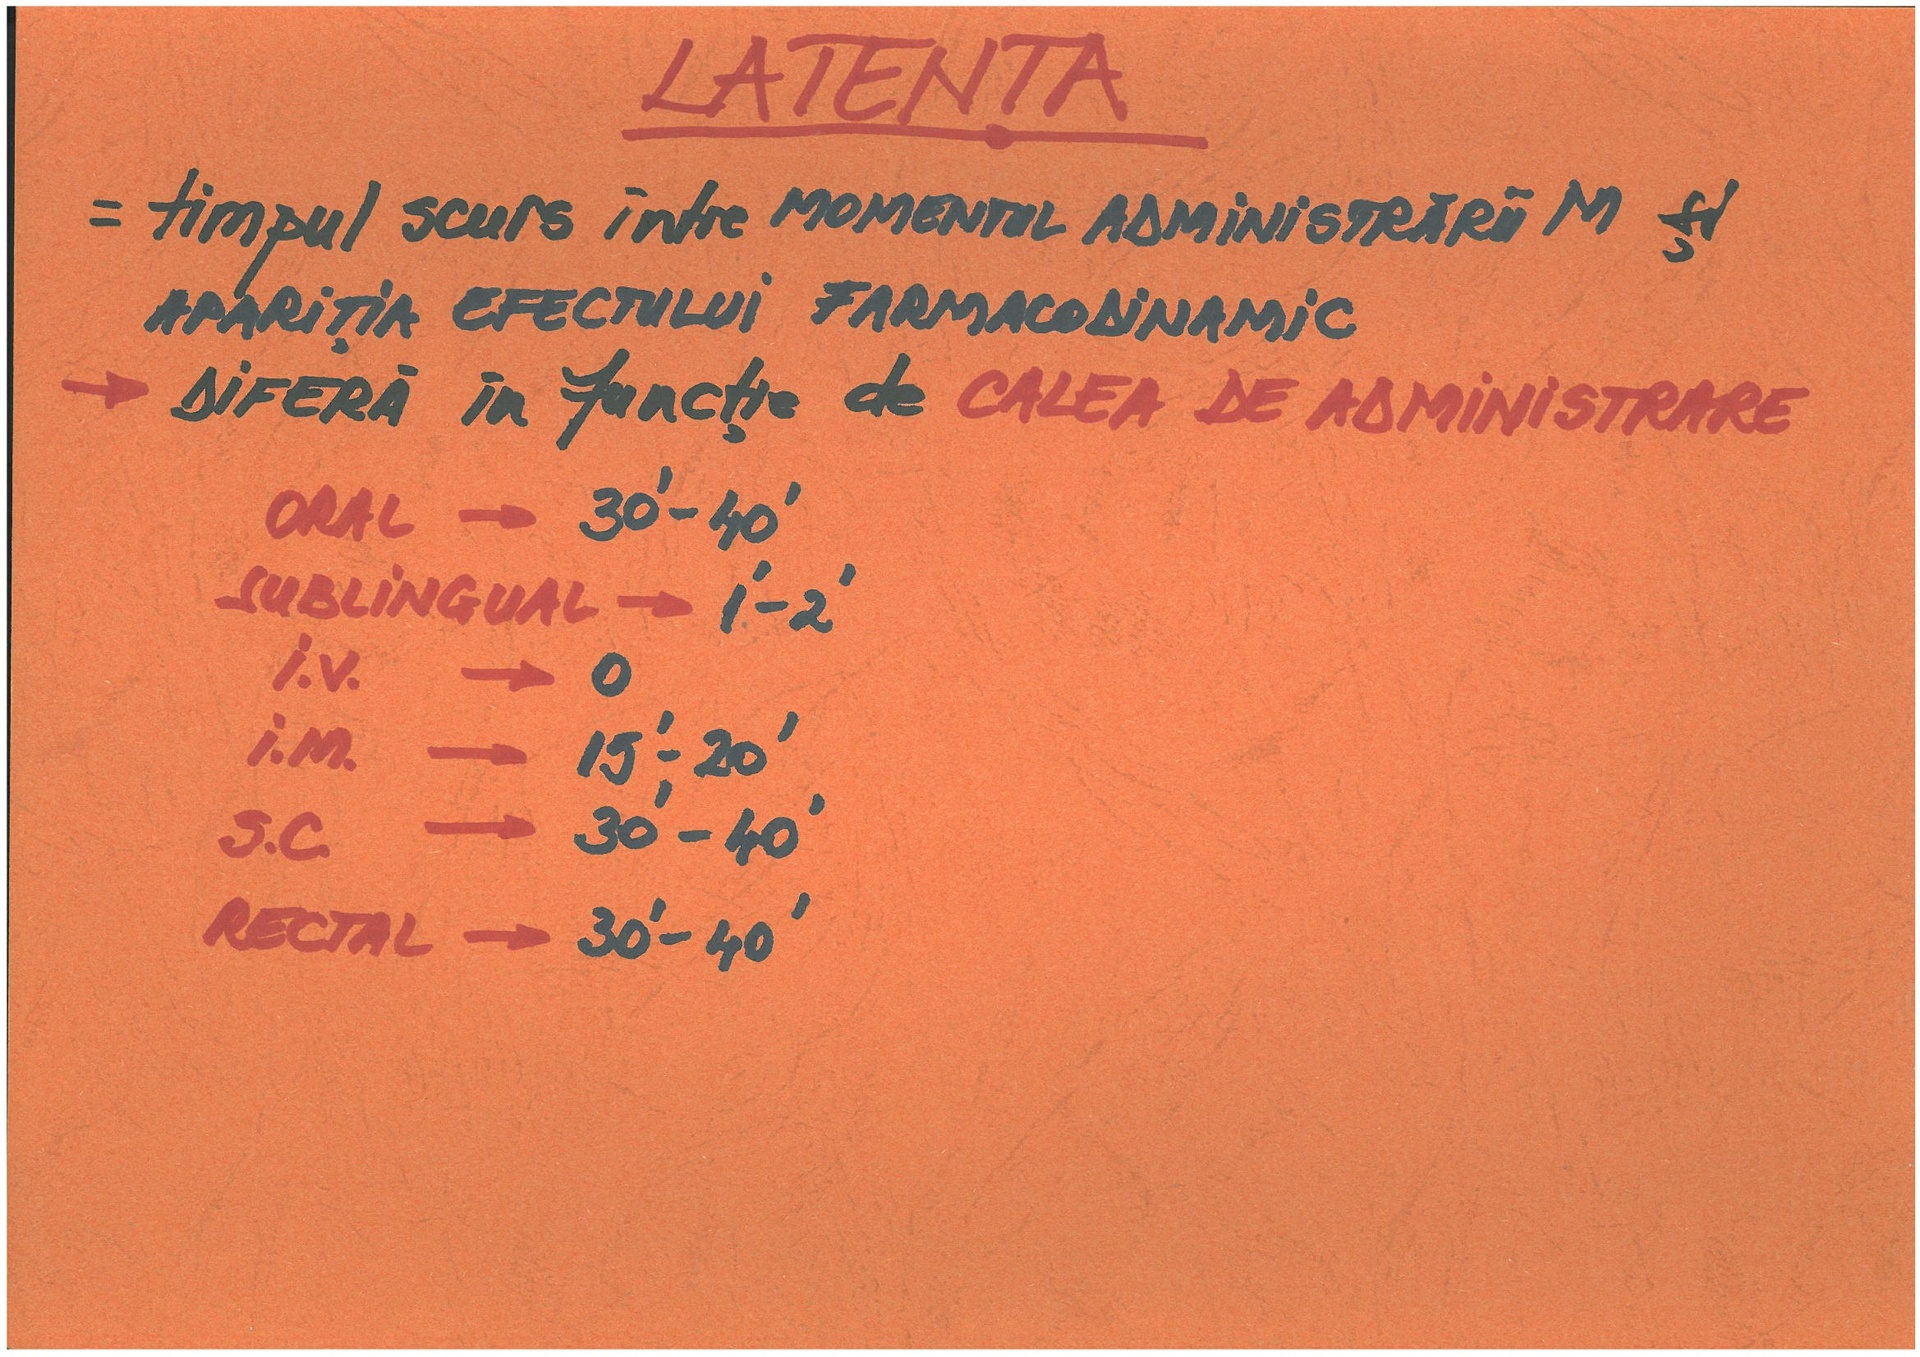 LATENȚA
= timpul scurs între MOMENTUL ADMINISTRĂRII M și
APARIȚIA EFECTULUI FARMACODINAMIC
→ DIFERĂ în funcție de CALEA DE ADMINISTRARE
ORAL → 30'-40'
SUBLINGUAL → 1'-2'
i.v. → 0
i.M. → 15'-20'
S.C. → 30'-40'
RECTAL → 30'-40'